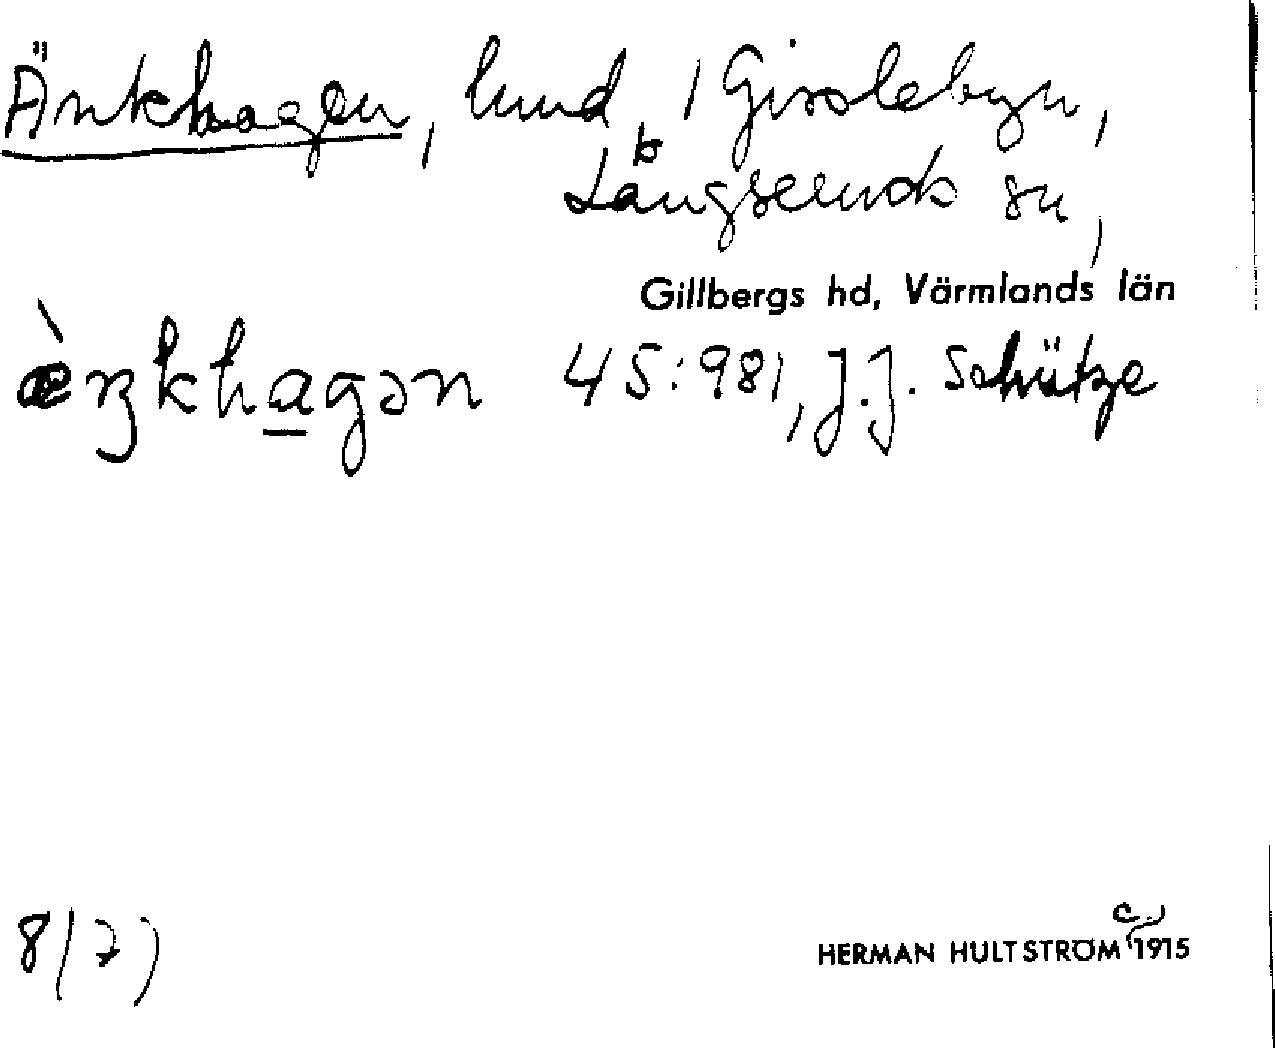 Änkhagen, lund, i Gisslebyn,
Långseruds sn,
Gillbergs hd, Värmlands län
æ̀ŋkhagən 45:981, J.J. Schütze
8(7)
HERMAN HULTSTRÖM c. 1915